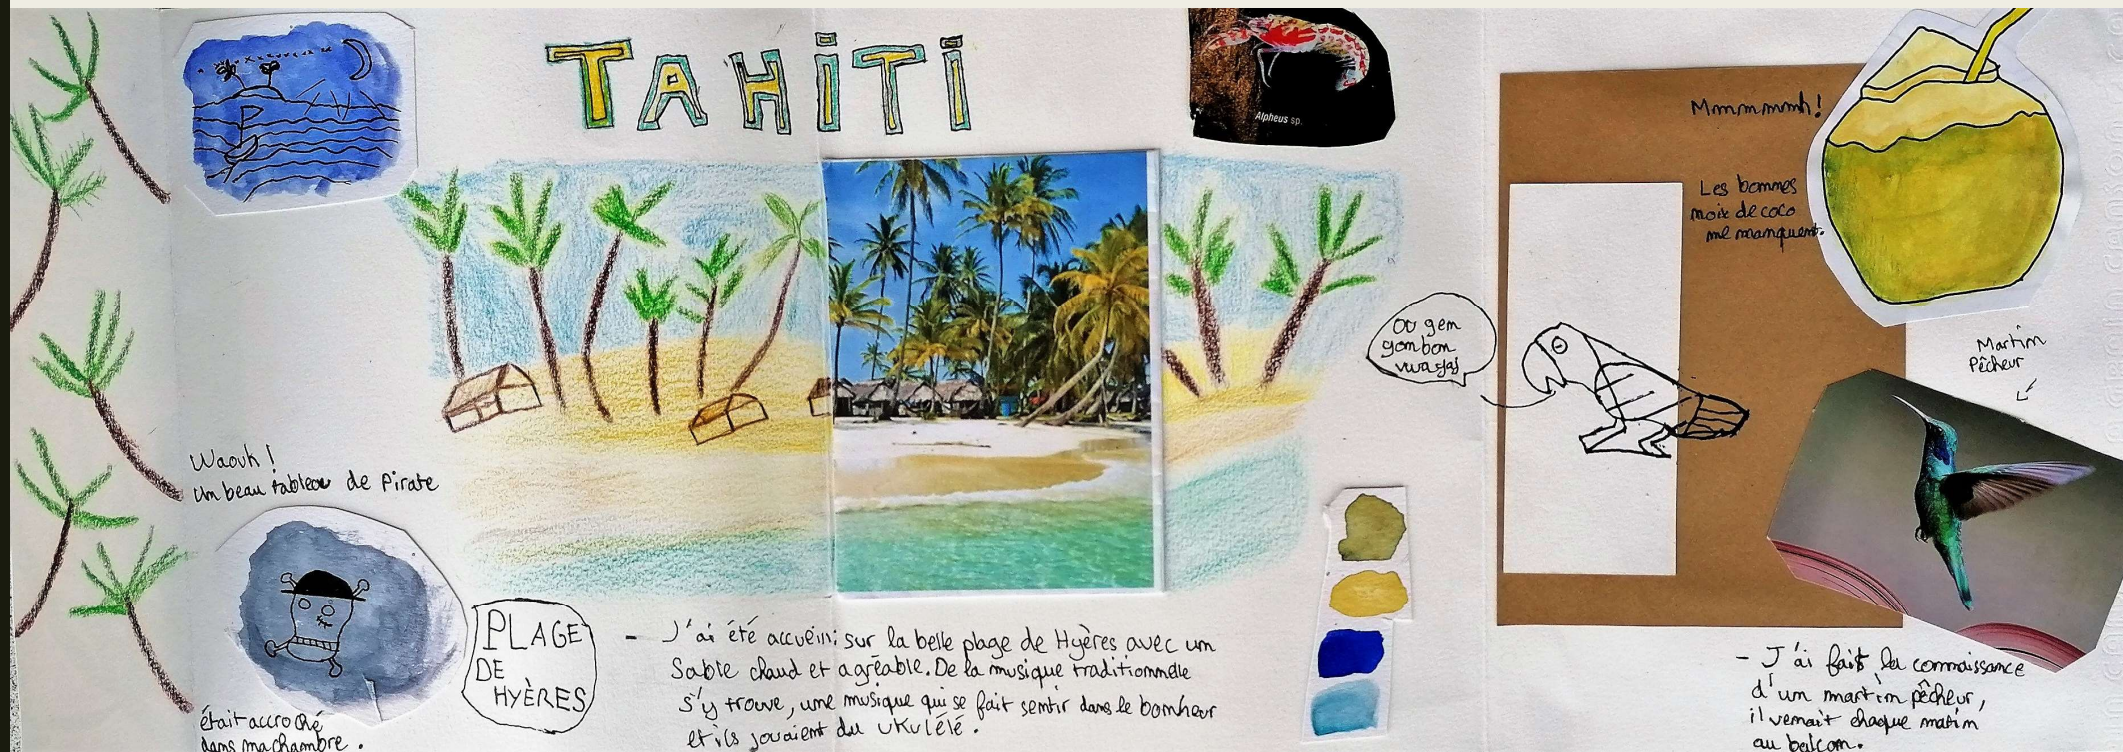 TAHITI
Alpheus sp.
Mmmmmmh!
Les bonnes
noix de coco
me manquent.
Martin
Pêcheur
Waouh!
Un beau tableau de Pirate
était accroché
dans ma chambre.
PLAGE
DE
HYÈRES
- J'ai été accueilli sur la belle plage de Hyères avec un
Sable chaud et agréable. De la musique traditionnelle
s'y trouve, une musique qui se fait sentir dans le bonheur
et ils jouaient du ukulélé.
- J'ai fait la connaissance
d'un martin pêcheur,
il venait chaque matin
au balcon.